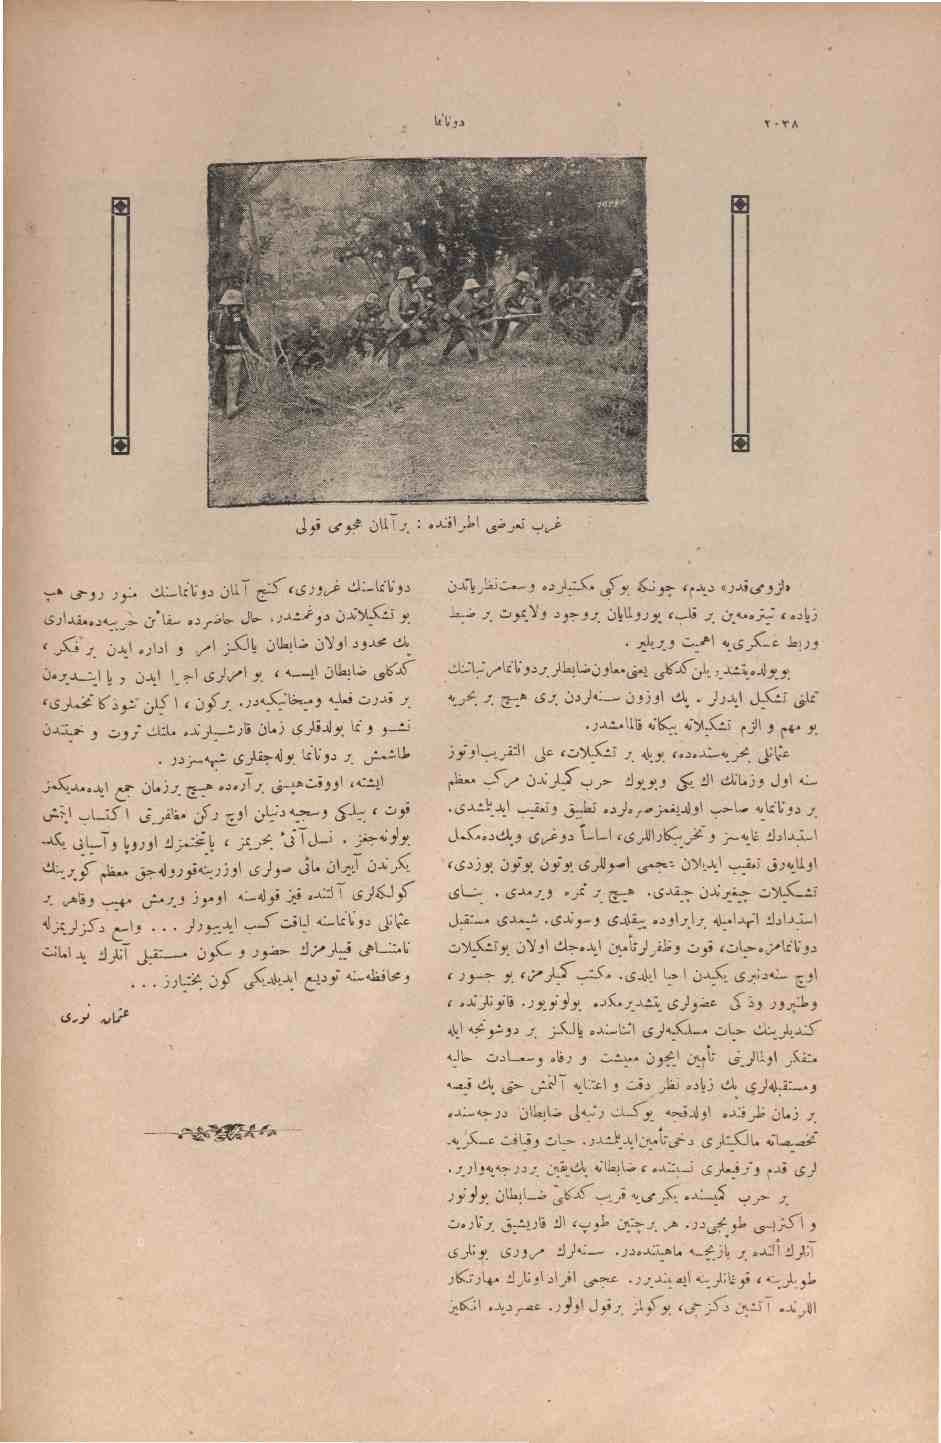 ٢٠٣٨
دوناﻧﻤﺎ
غرب تعرضی اطرافنده : بر آلمان هجومی قولی
«لزومی قدر» دیدم، چونکه بوکبی مکتبلرده وسعت نظریاتدن
زیاده، تیتره‌مه‌ین بر قلب، یورولمایان بر وجود ولایموت بر ضبط
وربط عسکری‌یه اهمیت ویریلیر .
بو یولده یتشدیریلن کدکلی یعنی معاون ضابطلر بر دونانما مرتباتنك
تملنی تشکیل ایدرلر . پك اوزون سنه‌لردن بری هیچ بر بحریه
بو مهم و الزم تشکیلاته بیکانه قالمامشدر.
عثمانلی بحریه‌سنده‌ده، بویله بر تشکیلات، علی التقریب اوتوز
سنه اول وزمانك اك یکی وبویوك حرب کمیلرندن مرکب معظم
بر دونانمایه صاحب اولدیغمز صره‌لرده تطبیق وتعقیب ایدیلمشدی.
استبدادك غایه‌سز و تخریبکار اللری، اساساً دوغری وپك ده مکمل
اولمایه‌رق تعقیب ایدیلان تجمی اصوللری بوتون بوتون بوزدی،
تشکیلات چیغیرندن چیقدی. هیچ بر ثمره ویرمدی . بنای
استبدادك انهدامیله برابر اوده ییقلدی وسوندی. شیمدی مستقبل
دونانمامزه حیات، قوت وظفرلر تأمین ایده‌جك اولان بو تشکیلات
اوچ سنه‌دنبری یکیدن احیا ایلدی. مکتب کمیلرمز، بو جسور،
وطنپرور وذکی عضولری یتشدیرمکده بولونویور. قانونلرنده ،
کندیلرینك حیات مسلکیه‌لری اثناسنده یالکز بر دوشونجه ایله
متفکر اولمالرینی تأمین ایچون معیشت و رفاه وسعادت حالیه
ومستقبله‌لری پك زیاده نظر دقت و اعتنایه آلنمش حتی پك قیصه
بر زمان ظرفنده اولدقجه یوکسك رتبه‌لی ضابطان درجه‌سنده
تخصیصاته مالکیتلری دخی تأمین ایدیلمشدر. حیات وقیافت عسکریه‌
لری قدم وترفیعلری نسبتنده، ضابطانه پك یقین بر درجه‌یه واریر.
بر حرب کمیسنده یکرمی‌یه قریب کدکلی ضابطان بولونور
و اکثریسی طوپجی‌در. هر بر چتین طوپ، اك قاریشیق بر تاره‌ت
آنلرك ألنده بر بازیچه ماهیتنده‌در. سنه‌لرك مروری بونلری
طوپلرینه، قوغانلرینه ایصیندیرر. عجمی افراد اونلرك مهارتکار
اللرنده آتشین دکزجی، بوکولمز بر قول اولور. عصردیده انکلیز
دونانماسنك غروری، کنج آلمان دونانماسنك منور روحی هپ
بو تشکیلاتدن دوغمشدر. حال حاضرده سفائن حربیه‌ده مقداری
پك محدود اولان ضابطان یالکز امر و اداره ایدن بر فکر ،
کدکلی ضابطان ایسه ، بو امرلری اجرا ایدن و یا ایتدیرەن
بر قدرت فعلیه ومیخانیکیه‌در. برکون ، اکیلن شو ذکا تخملری،
نشو و نما بولدقلری زمان قارشیلرنده ملتك ثروت و حمیتندن
طاشمش بر دونانما بوله‌جقلری شبهه‌سزدر .
ایشته، اووقت هپسنی بر آره‌ده هیچ بر زمان جمع ایده‌مدیکمز
قوت ، بیلکی وسجیه دنیلن اوچ رکن مظفریتی اکتساب ایتمش
بولونه‌جغز . نسل آتئ بحریمز ، پایتختمزك اوروپا وآسیایی یکد‌
یکرندن آییران مائی صولری اوزرینه قوروله‌جق معظم کوپرینك
کولکه‌لری آلتنده قیز قوله‌سنه اوموز ویرمش مهیب وقاهر بر
عثمانلی دونانماسنه لیاقت کسب ایدییورلر ... واسع دکزلریمزله
نامتناهی قییلرمزك حضور و سکون مستقبلی آنلرك ید امانت
ومحافظه‌سنه تودیع ایدیلدیکی کون بختیارز ...
عثمان نوری